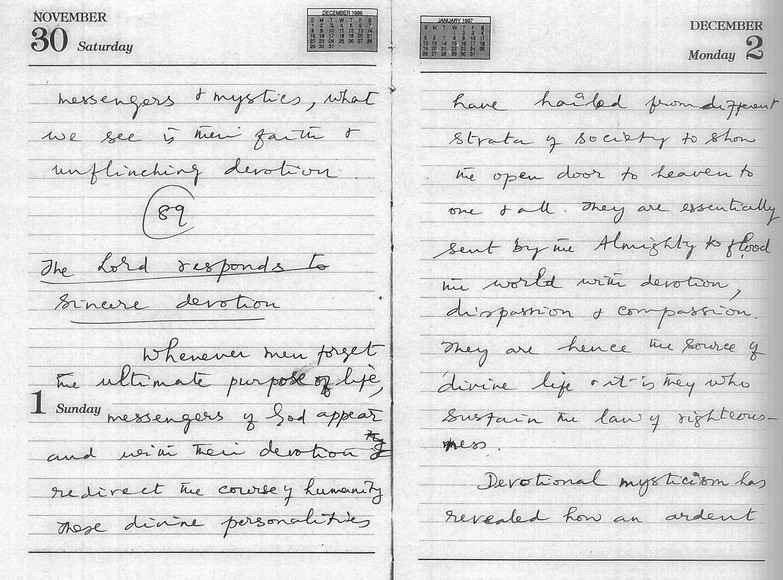 NOVEMBER
30 Saturday
DECEMBER 1996
messengers & mystics, what
we see is their faith &
unflinching devotion.
89
The Lord responds to
sincere devotion
Whenever men forget
the ultimate purpose of life,
1 Sunday
messengers of God appear
and with their devotion
redirect the course of humanity
These divine personalities
JANUARY 1997
DECEMBER
Monday 2
have hailed from different
strata of society to show
the open door to heaven to
one & all. They are essentially
sent by the Almighty to flood
the world with devotion,
dispassion & compassion.
They are hence the source of
divine life & it is they who
sustain the law of righteous-
ness.
Devotional mysticism has
revealed how an ardent